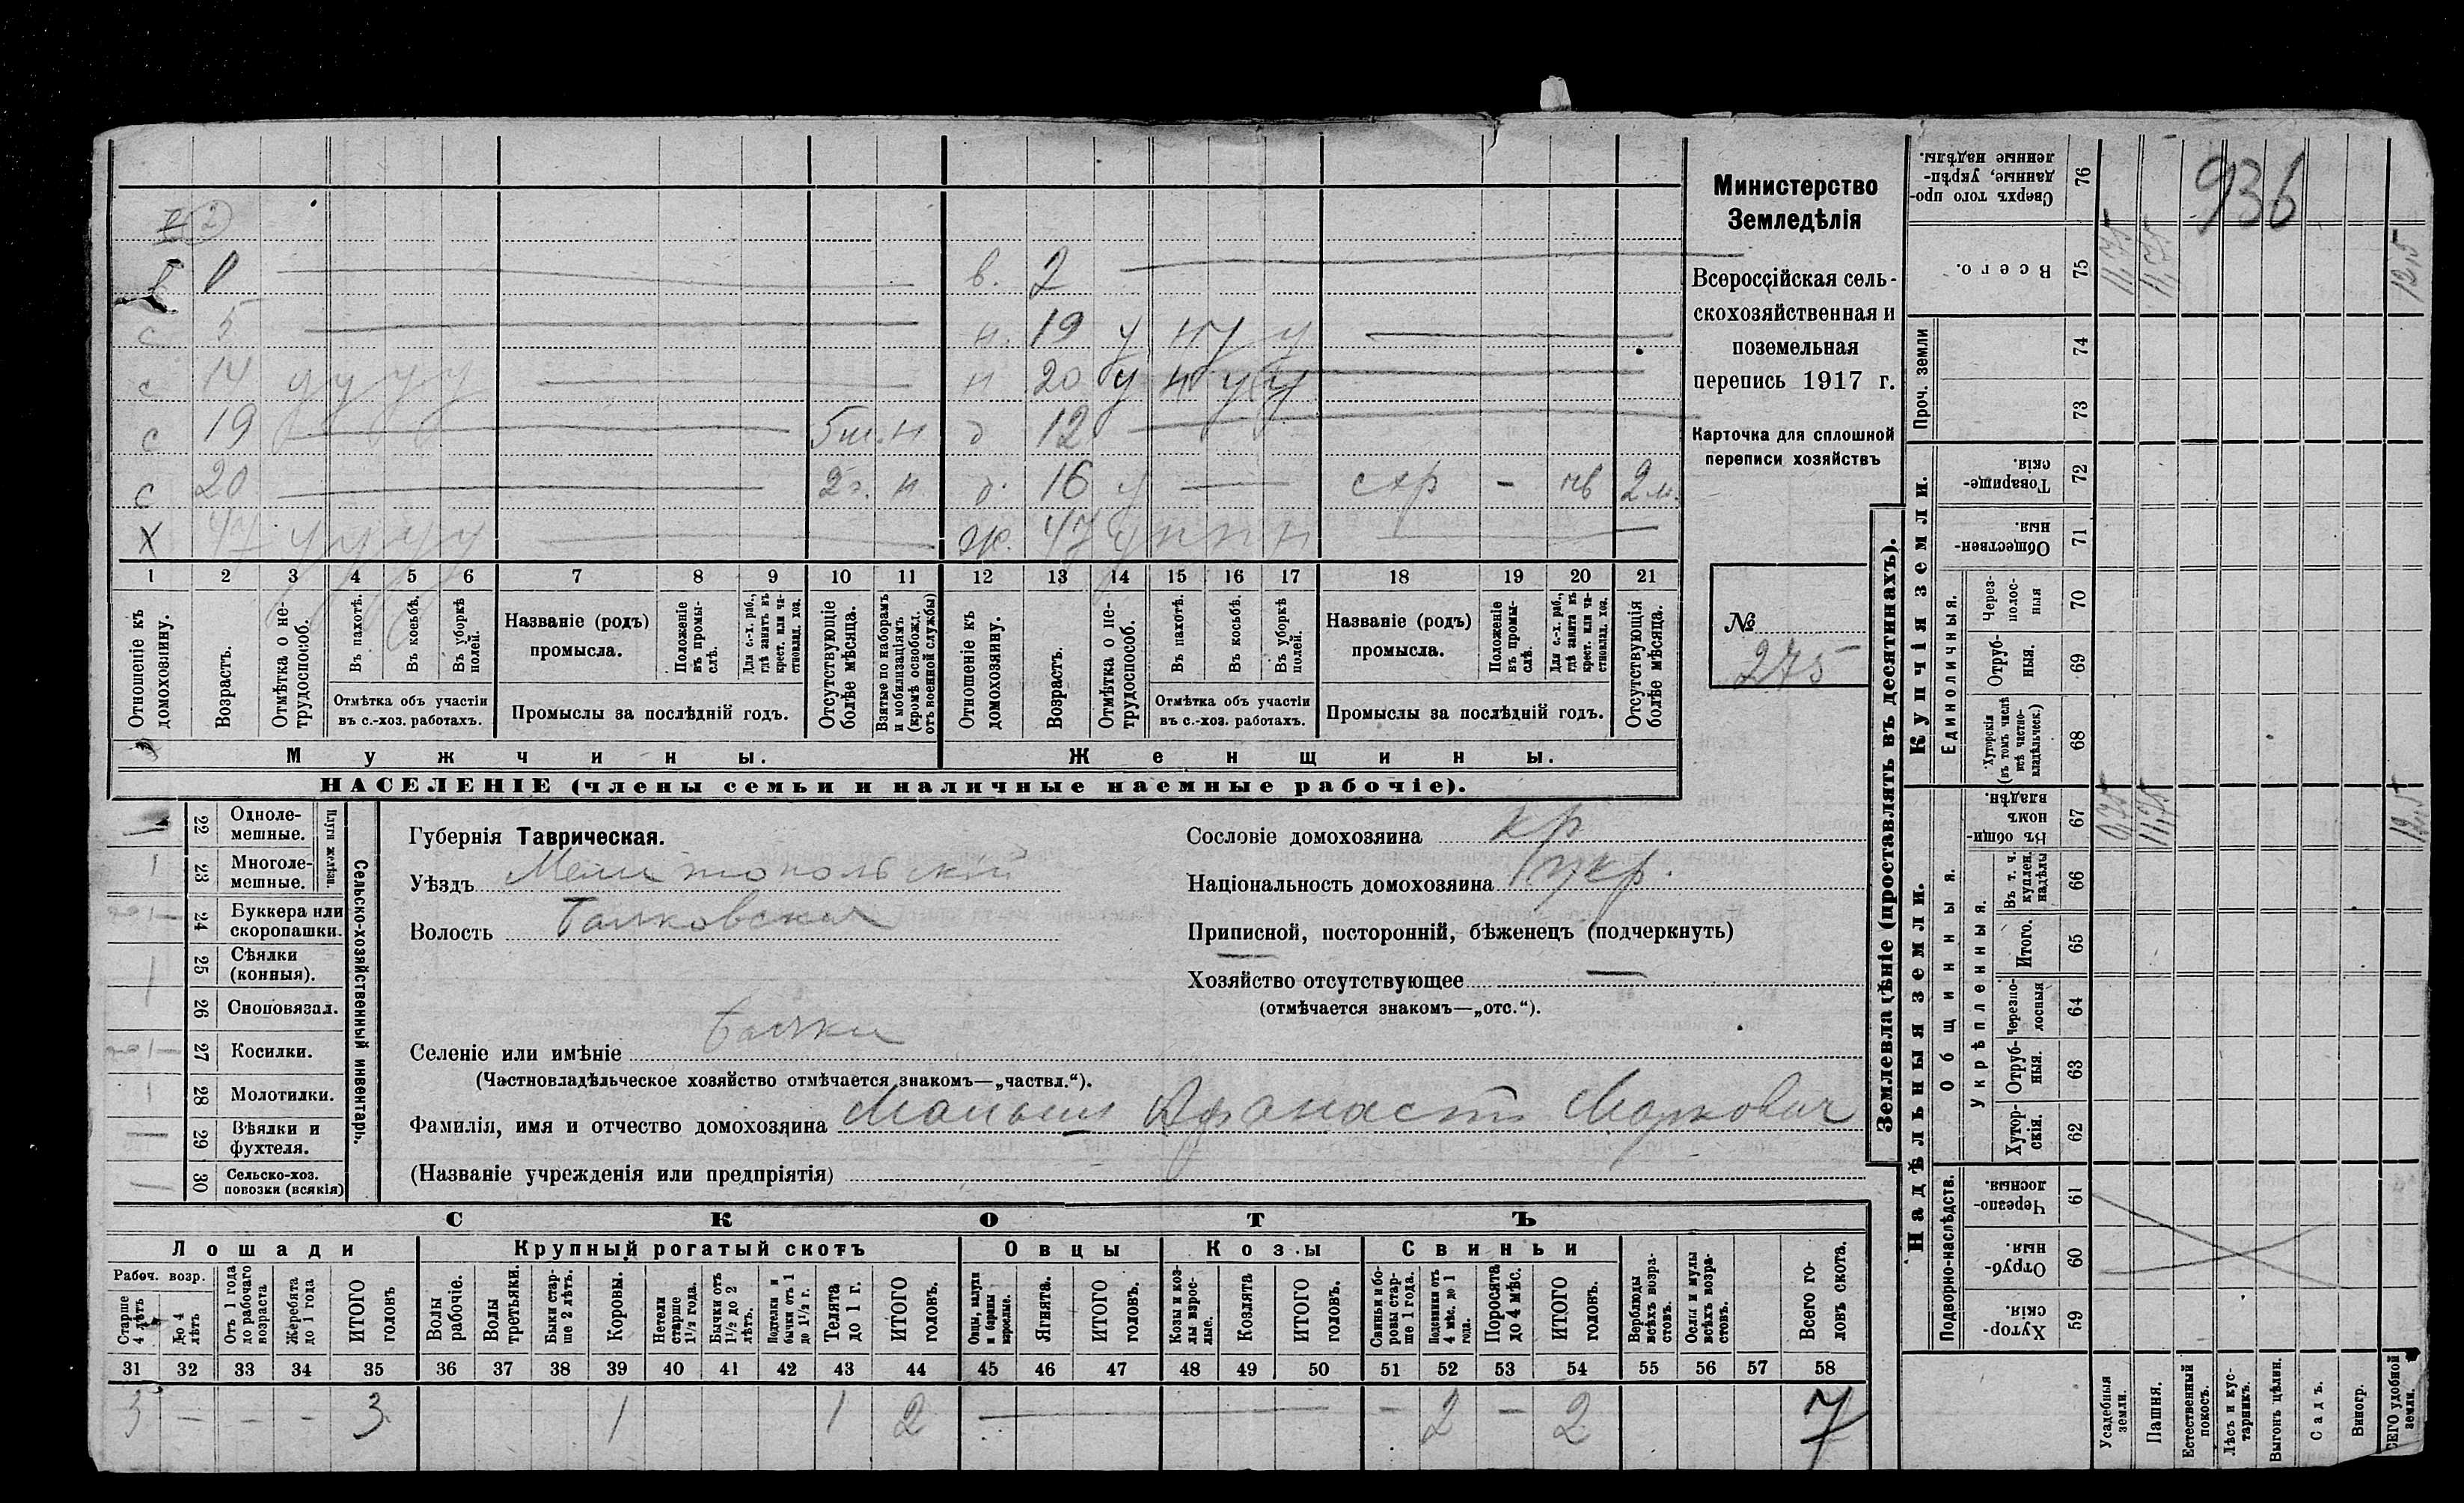 936
Министерство
Земледѣлія
Всероссійская сель-
скохозяйственная и
поземельная
перепись 1917 г.
Карточка для сплошной
переписи хозяйствъ
№
275
в. 2
с 5
н. 19 у н у у
с 14 у у у у
н 20 у н у у
с 19
н
д 12
с 20
2 г. н
д. 16 у
2 м.
Х 47 у у у у
ж. 47 у н н н
1 2 3 4 5 6 7 8 9 10 11 12 13 14 15 16 17 18 19 20 21
Отношеніе къ домохозяину.
Возрастъ.
Отмѣтка о не-трудоспособ.
Въ пахотѣ.
Въ косьбѣ.
Въ уборкѣ полей.
Отмѣтка объ участіи
въ с.-хоз. работахъ.
Названіе (родъ)
промысла.
Положеніе въ промы-слѣ.
Для с.-х. раб., гдѣ занятъ въ крест. или ча-стновлад. хоз.
Промыслы за послѣдній годъ.
Отсутствующіе болѣе мѣсяца.
Взятые по наборамъ и мобилизаціямъ (кромѣ освобожд. отъ военной службы)
Отношеніе къ домохозяину.
Возрастъ.
Отмѣтка о не-трудоспособ.
Въ пахотѣ.
Въ косьбѣ.
Въ уборкѣ полей.
Отмѣтка объ участіи
въ с.-хоз. работахъ.
Названіе (родъ)
промысла.
Положеніе въ промы-слѣ.
Для с.-х. раб., гдѣ занята въ крест. или ча-стновлад. хоз.
Промыслы за послѣдній годъ.
Отсутствующія болѣе мѣсяца.
Мужчины.
Женщины.
НАСЕЛЕНІЕ (члены семьи и наличные наемные рабочіе).
Сельско-хозяйственный инвентарь.
Плуги желѣзн.
22 Одноле-мешные.
1 23 Многоле-мешные.
24 Буккера или скоропашки.
1 25 Сѣялки (конныя).
26 Сноповязал.
27 Косилки.
1 28 Молотилки.
29 Вѣялки и фухтеля.
30 Сельско-хоз. повозки (всякія)
Губернія Таврическая.
Уѣздъ Мелитопольскій
Волость Балковская
Селеніе или имѣніе Балки
(Частновладѣльческое хозяйство отмѣчается знакомъ—„частвл.“).
Фамилія, имя и отчество домохозяина
(Названіе учрежденія или предпріятія)
Сословіе домохозяина кр
Національность домохозяина укр.
Приписной, посторонній, бѣженецъ (подчеркнуть)
Хозяйство отсутствующее —
(отмѣчается знакомъ—„отс.“).
СКОТЪ
Лошади
Рабоч. возр.
Старше 4 лѣтъ
До 4 лѣтъ
Отъ 1 года до рабочаго возраста
Жеребята до 1 года
ИТОГО головъ
Крупный рогатый скотъ
Волы рабочіе.
Волы третьяки.
Быки стар-ше 2 лѣтъ.
Коровы.
Нетели старше 1½ года.
Бычки отъ 1½ до 2 лѣтъ.
Подтелки и бычки отъ 1 до 1½ г.
Телята до 1 г.
ИТОГО головъ.
Овцы
Овцы, валухи и бараны взрослые.
Ягнята.
ИТОГО головъ.
Козы
Козы и коз-лы взрос-лые.
Козлята
ИТОГО головъ.
Свиньи
Свиньи и бо-ровы стар-ше 1 года.
Подсвинки отъ 4 мѣс. до 1 года.
Поросята до 4 мѣс.
ИТОГО головъ.
Верблюды всѣхъ возра-стовъ.
Ослы и мулы всѣхъ возра-стовъ.
Всего го-ловъ скота.
31 32 33 34 35 36 37 38 39 40 41 42 43 44 45 46 47 48 49 50 51 52 53 54 55 56 57 58
3 — — — 3 1 1 2 — — 2 — 2 7
Землевладѣніе (проставлять въ десятинахъ).
Надѣльныя земли.
Купчія земли.
Проч. земли
Подворно-наслѣдств.
Общинныя.
Укрѣпленныя.
Единоличныя.
Сверхъ того про-данные, укрѣп-ленные надѣлы. 76
Всего. 75
74
73
Товарище-скія. 72
Обществен-ныя. 71
Через-полос-ныя 70
Отруб-ныя. 69
Хуторскія (въ томъ числѣ всѣ частно-владѣльческ.) 68
Въ общин-номъ владѣн. 67
Въ т. ч. куплен. надѣлы 66
Итого. 65
Черезпо-лосныя 64
Отруб-ныя. 63
Хутор-скія. 62
Черезпо-лосныя. 61
Отруб-ныя. 60
Хутор-скія. 59
Усадебныя земли.
Пашня.
Естественный покосъ.
Лѣсъ и кус-тарникъ.
Выгонъ цѣлин.
Садъ.
Виногр.
ВСЕГО удобной земли.
11,75
12,5
11,75
12,5